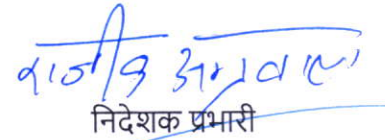 राजीव अग्रवाल
निदेशक प्रभारी